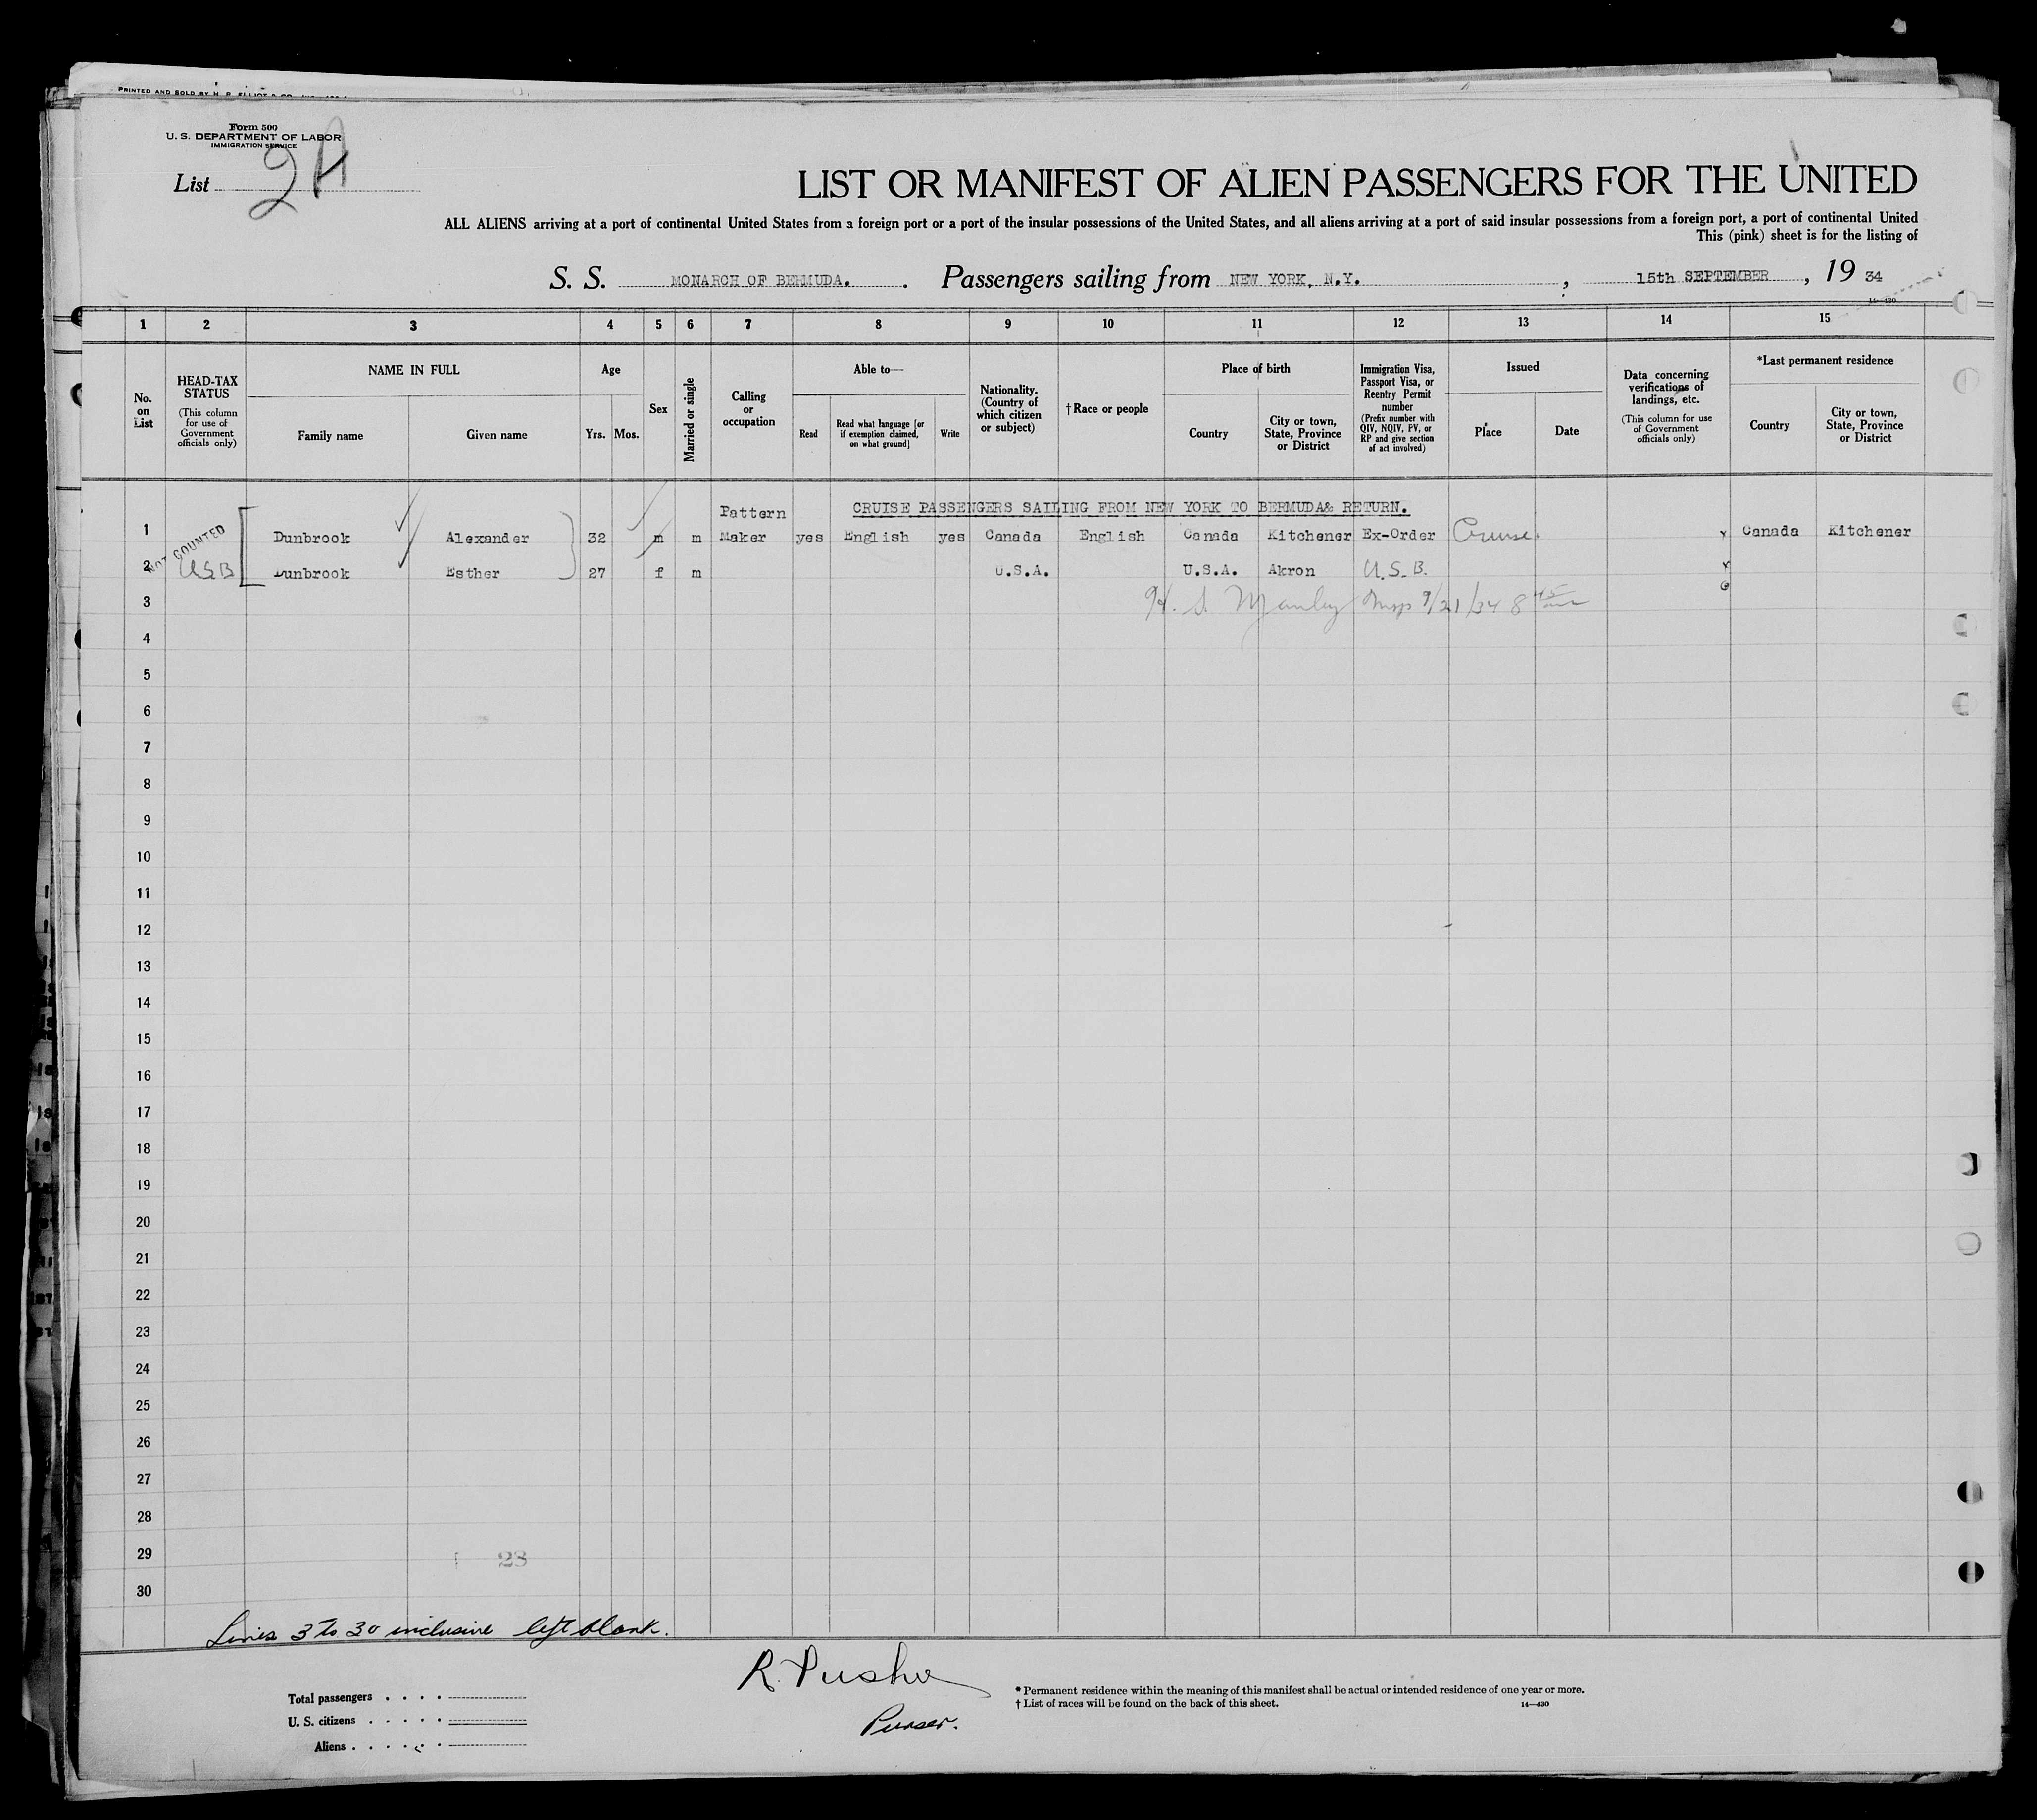 PRINTED AND SOLD BY H. R. ELLIOT & CO.
Form 500
U. S. DEPARTMENT OF LABOR
IMMIGRATION SERVICE
List 2A
LIST OR MANIFEST OF ALIEN PASSENGERS FOR THE UNITED
ALL ALIENS arriving at a port of continental United States from a foreign port or a port of the insular possessions of the United States, and all aliens arriving at a port of said insular possessions from a foreign port, a port of continental United
This (pink) sheet is for the listing of
S. S. MONARCH OF BERMUDA. . Passengers sailing from NEW YORK, N.Y. , 15th SEPTEMBER , 19 34
14—430
1 2 3 4 5 6 7 8 9 10 11 12 13 14 15
No. on List
HEAD-TAX STATUS (This column for use of Government officials only)
NAME IN FULL
Family name Given name
Age
Yrs. Mos.
Sex
Married or single
Calling or occupation
Able to—
Read Read what language [or if exemption claimed, on what ground] Write
Nationality. (Country of which citizen or subject)
† Race or people
Place of birth
Country City or town, State, Province or District
Immigration Visa, Passport Visa, or Reentry Permit number (Prefix number with QIV, NQIV, PV, or RP and give section of act involved)
Issued
Place Date
Data concerning verifications of landings, etc. (This column for use of Government officials only)
*Last permanent residence
Country City or town, State, Province or District
CRUISE PASSENGERS SAILING FROM NEW YORK TO BERMUDA& RETURN.
1 NOT COUNTED Dunbrook Alexander 32 m m Pattern Maker yes English yes Canada English Canada Kitchener Ex-Order Cruise. x Canada Kitchener
2 USB Dunbrook Esther 27 f m U.S.A. U.S.A. Akron U.S.B. x
3 H. S. Manley Insp 9/21/34 8 45 am
4
5
6
7
8
9
10
11
12
13
14
15
16
17
18
19
20
21
22
23
24
25
26
27
28
29
23
30
Lines 3 to 30 inclusive left blank.
Total passengers
U. S. citizens
Aliens
Purser.
* Permanent residence within the meaning of this manifest shall be actual or intended residence of one year or more.
† List of races will be found on the back of this sheet. 14—430